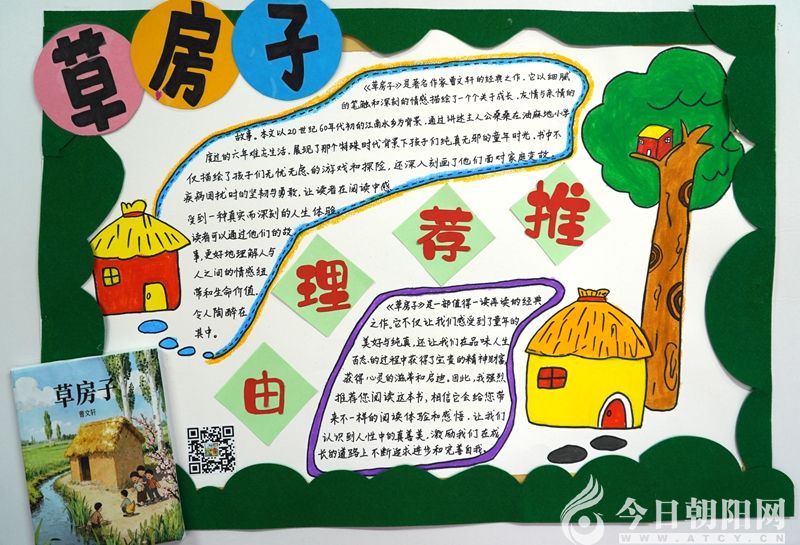 草房子
《草房子》是著名作家曹文轩的经典之作。它以细腻
的笔触和深刻的情感,描绘了一个个关于成长、友情与亲情的
故事。本文以20世纪60年代初的江南水乡为背景,通过讲述主人公桑桑在油麻地小学
度过的六年难忘生活,展现了那个特殊时代背景下孩子们纯真无邪的童年时光。书中不
仅描绘了孩子们无忧无虑的游戏和探险,还深入刻画了他们面对家庭变故、
疾病困扰时的坚韧与勇敢,让读者在阅读中感
受到一种真实而深刻的人生体验
读者可以通过他们的故
事,更好地理解人与
人之间的情感纽
带和生命价值,
令人陶醉在
其中。
推
荐
理
由
《草房子》是一部值得一读再读的经典
之作。它不仅让我们感受到了童年的
美好与纯真,还让我们在品味人生
百态的过程中获得了宝贵的精神财富,
获得心灵的滋养和启迪。因此,我强烈
推荐您阅读这本书,相信它会给您带
来不一样的阅读体验和感悟,让我们
认识到人性中的真善美,激励我们在成
长的道路上不断追求进步和完善自我。
草房子
曹文轩
今日朝阳网
WWW.ATCY.CN